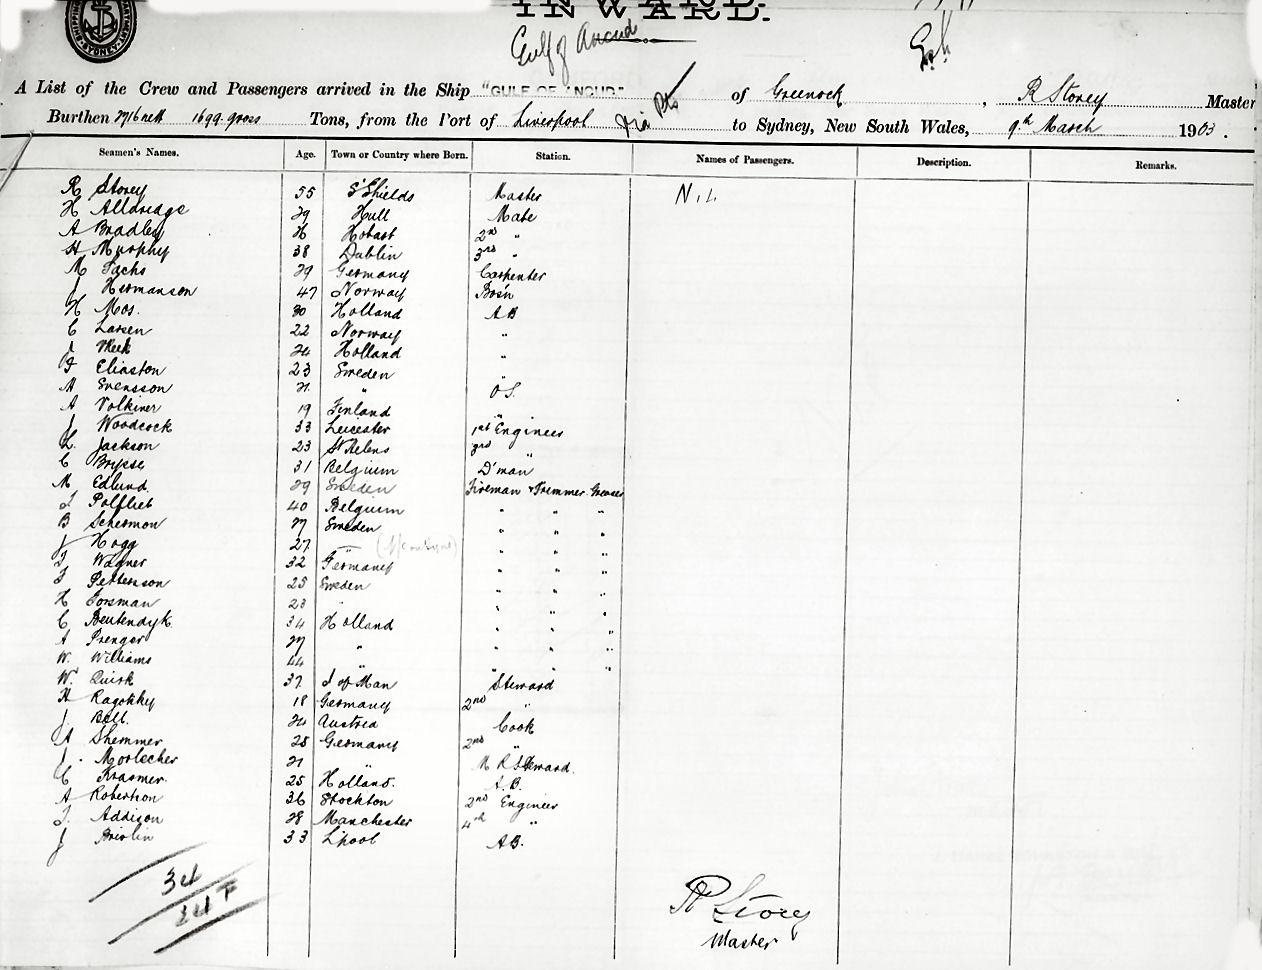 INWARD.
Gulf of Ancud
A List of the Crew and Passengers arrived in the Ship "GULF OF ANCUD" of Greenock, R Storey Master
Burthen nett 1699 gross Tons, from the Port of Liverpool via Pts to Sydney, New South Wales, 9th March 1903.
Seamen's Names. Age. Town or Country where Born. Station. Names of Passengers. Description. Remarks.
R Storey 55 S'Shields Master Nil.
H Alldridge 29 Hull Mate
A Bradley 26 Hobart 2nd "
H Murphy 38 Dublin 3rd "
M 29 Germany Carpenter
J Hermanson 47 Norway Bos'n
H Mos. 30 Holland AB
C Larsen 22 Norway "
J 24 Holland "
F Eliaston 23 Sweden "
A Svensson 21 " OS.
A Volkiner 19 Finland "
J Woodcock 33 Leicester 1st Engineer
L. Jackson 23 St Helens 3rd "
C Brysse 31 Belgium D'man
M Edlund 29 Sweden Fireman & Trimmer Greaser
J Polfliet 40 Belgium " " "
B Scherman 27 Sweden " " "
J Hogg 27 " " " "
J Wagner 32 Germany " " "
J Petterson 25 Sweden " " "
H Forsman 23 " " " "
C Beutendyk 34 Holland " " "
A Prenger 27 " " " "
W. Williams 44 " " " "
W. Quirk 37 I of Man Steward
H Ragotzky 18 Germany 2nd "
J. Bell. 24 Austria Cook
A Shemmer 25 Germany 2nd "
J. Morlecher 21 " M R Steward.
C Krasmer 25 Holland. A.B.
A Robertson 36 Stockton 2nd Engineer
J. Addison 28 Manchester 4th "
J 33 L'pool AB.
34
R Storey
Master